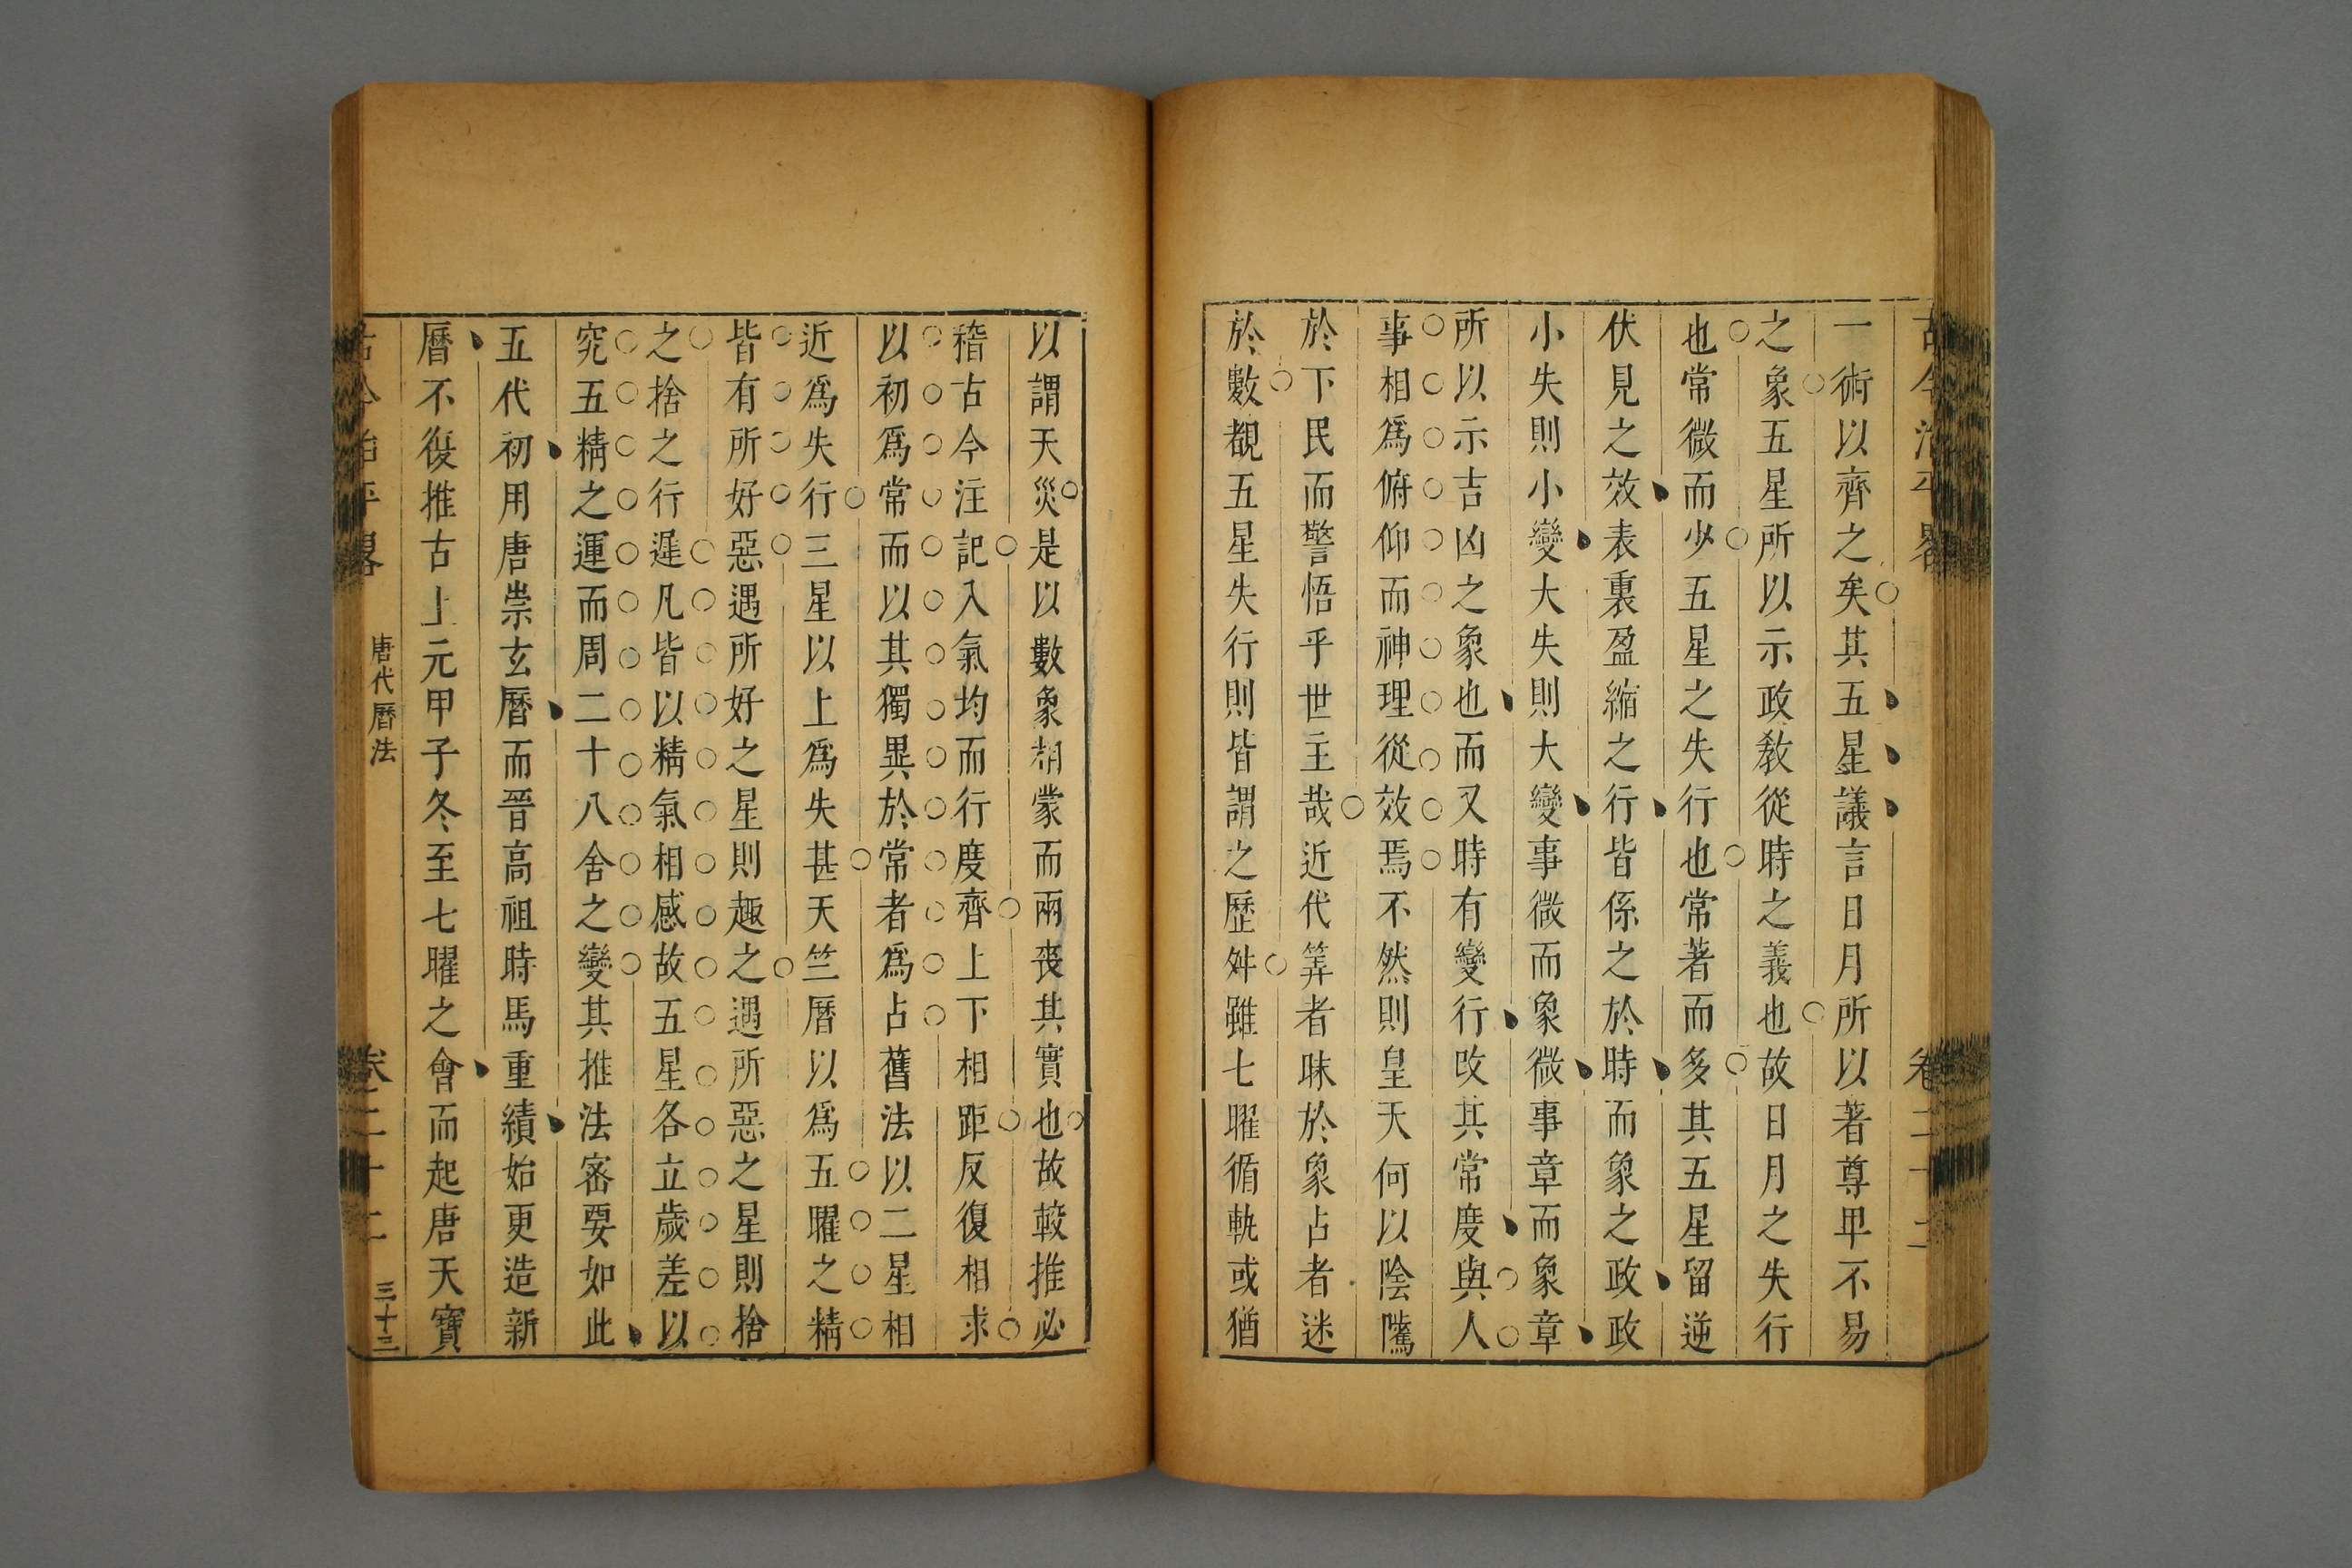 古今治平畧 卷二十二
一術以齊之矣其五星議言日月所以著尊卑不易
之象五星所以示政敎從時之義也故日月之失行
也常微而少五星之失行也常著而多其五星留逆
伏見之效表裏盈縮之行皆係之於時而象之政政
小失則小變大失則大變事微而象微事章而象章
所以示吉凶之象也而又時有變行攺其常度與人
事相爲俯仰而神理從效焉不然則皇天何以陰隲
於下民而警悟乎世主哉近代筭者昧於象占者迷
於數覩五星失行則皆謂之歷舛雖七曜循軌或猶
以謂天災是以數象相蒙而兩喪其實也故較推必
稽古今注記入氣均而行度齊上下相距反復相求
以初爲常而以其獨異於常者爲占舊法以二星相
近爲失行三星以上爲失甚天竺曆以爲五曜之精
皆有所好惡遇所好之星則趣之遇所惡之星則捨
之捨之行遲凡皆以精氣相感故五星各立歲差以
究五精之運而周二十八舍之變其推法宻要如此
五代初用唐崇玄曆而晉高祖時馬重績始更造新
曆不復推古上元甲子冬至七曜之會而起唐天寶
古今治平畧 唐代曆法 卷二十二 三十三